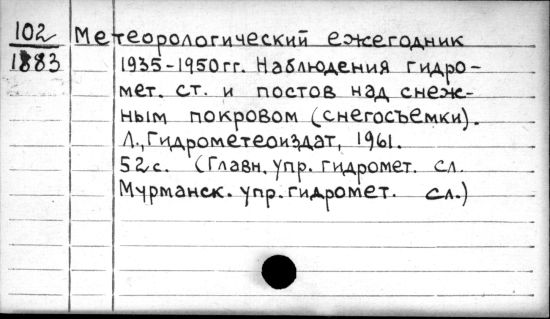 102 Метеорологический ежегодник
1883 1935-1950гг. Наблюдения гидро-
мет. ст. и постов над снеж-
ным покровом (снегосъемки).
Л., Гидрометеоиздат, 1961.
52с. (Главн. упр. гидромет. сл.
Мурманск. упр. гидромет. сл.)